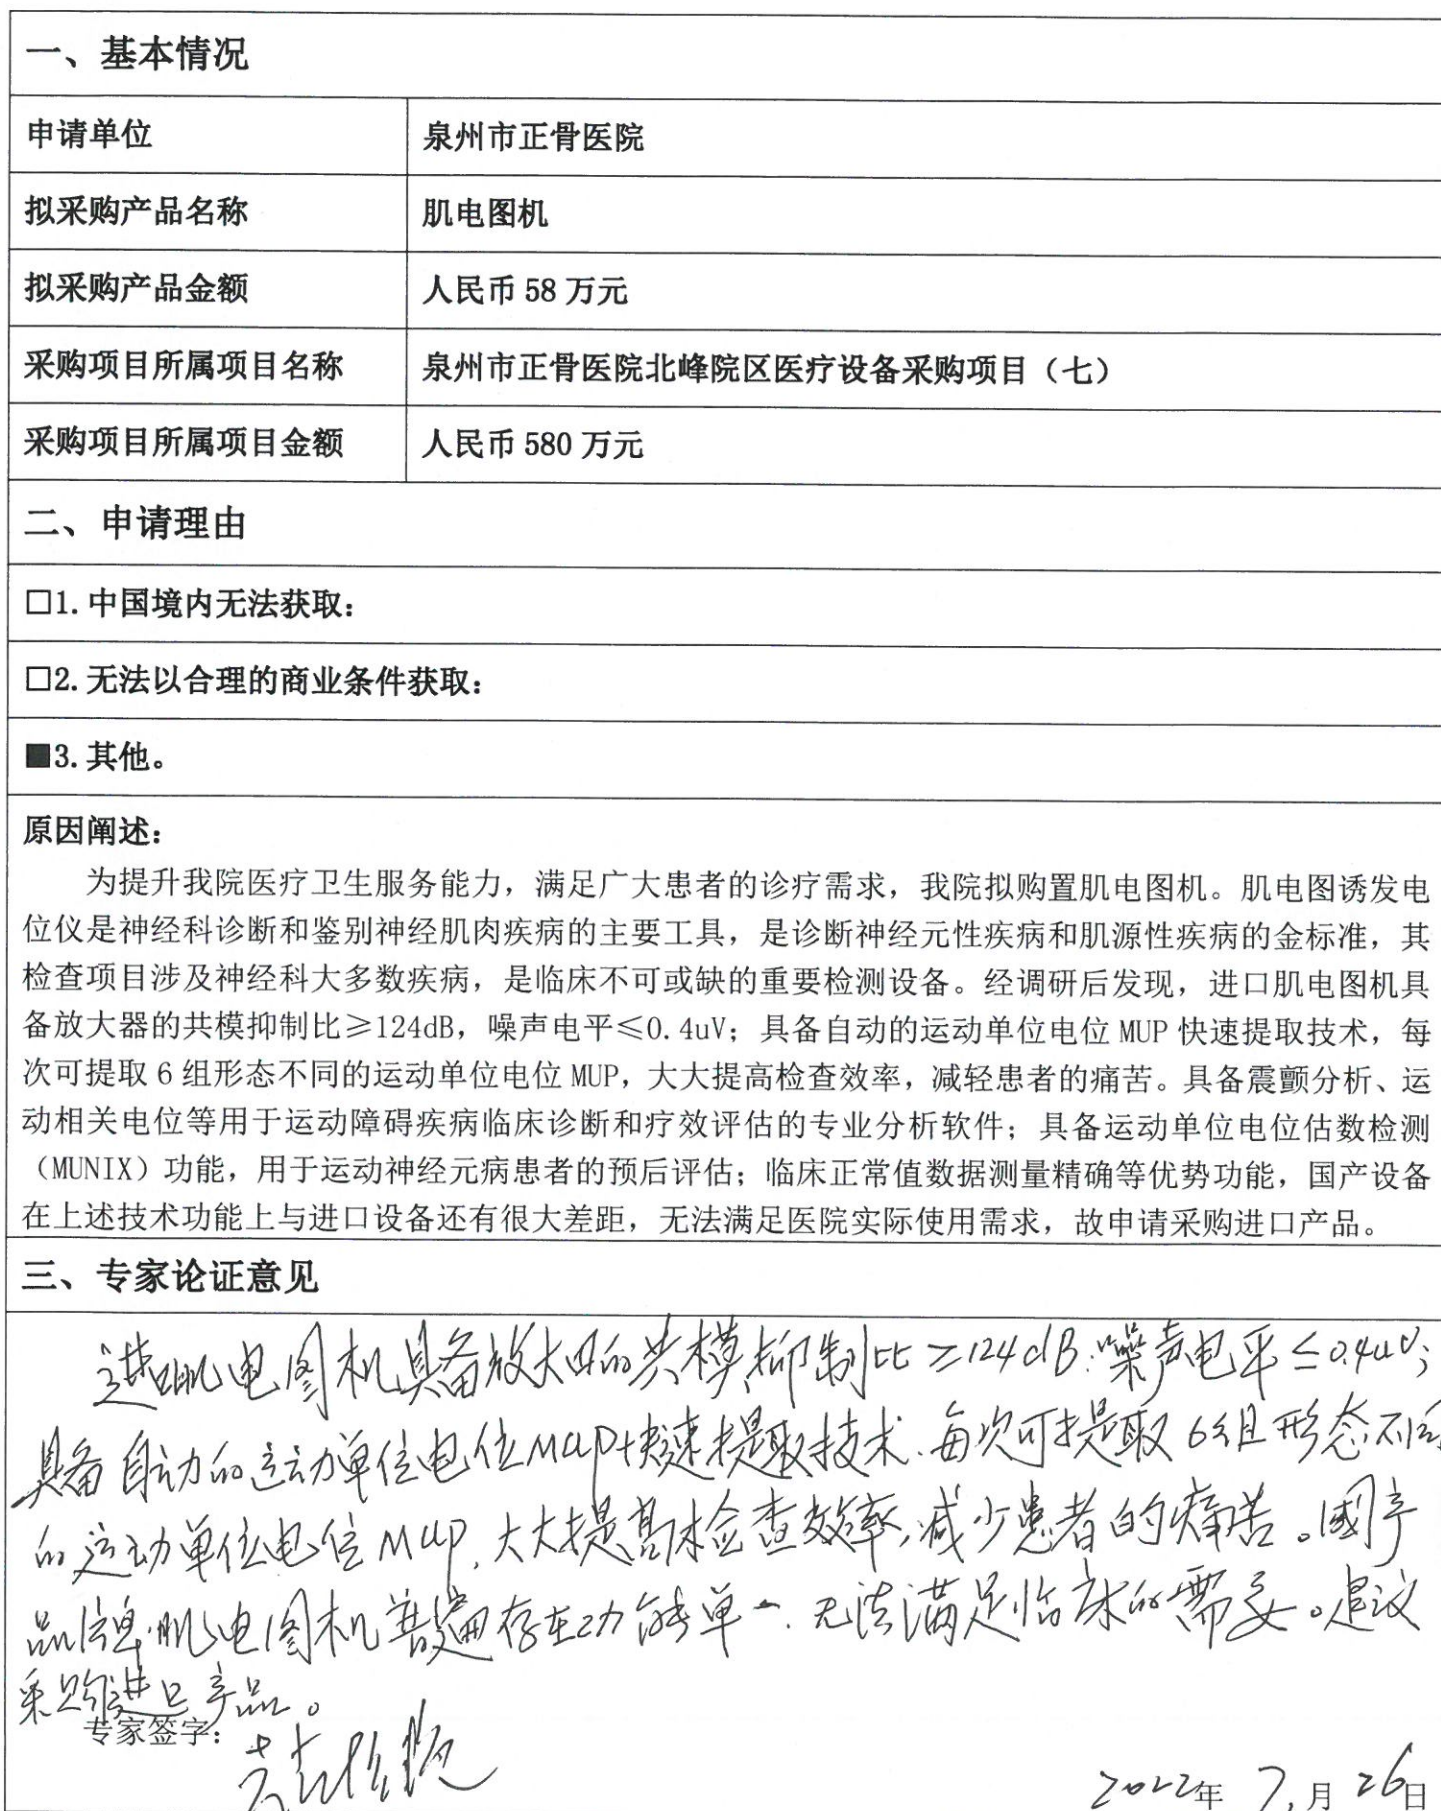 一、基本情况
申请单位 泉州市正骨医院
拟采购产品名称 肌电图机
拟采购产品金额 人民币 58 万元
采购项目所属项目名称 泉州市正骨医院北峰院区医疗设备采购项目（七）
采购项目所属项目金额 人民币 580 万元
二、申请理由
□1. 中国境内无法获取：
□2. 无法以合理的商业条件获取：
■3. 其他。
原因阐述：
为提升我院医疗卫生服务能力，满足广大患者的诊疗需求，我院拟购置肌电图机。肌电图诱发电
位仪是神经科诊断和鉴别神经肌肉疾病的主要工具，是诊断神经元性疾病和肌源性疾病的金标准，其
检查项目涉及神经科大多数疾病，是临床不可或缺的重要检测设备。经调研后发现，进口肌电图机具
备放大器的共模抑制比≥124dB，噪声电平≤0.4uV；具备自动的运动单位电位 MUP 快速提取技术，每
次可提取 6 组形态不同的运动单位电位 MUP，大大提高检查效率，减轻患者的痛苦。具备震颤分析、运
动相关电位等用于运动障碍疾病临床诊断和疗效评估的专业分析软件；具备运动单位电位估数检测
（MUNIX）功能，用于运动神经元病患者的预后评估；临床正常值数据测量精确等优势功能，国产设备
在上述技术功能上与进口设备还有很大差距，无法满足医院实际使用需求，故申请采购进口产品。
三、专家论证意见
进口肌电图机具备放大器的共模抑制比≥124dB.噪声电平≤0.4uV；
具备自动的运动单位电位MUP快速提取技术.每次可提取6组形态不同
的运动单位电位MUP,大大提高检查效率,减少患者的痛苦。國产
品牌肌电图机普遍存在功能单一.无法满足临床的需要。建议
采购进口产品。
专家签字：
2022年 7.月 26日